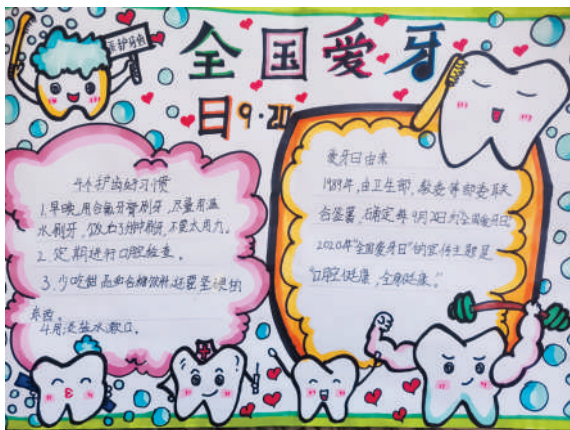 爱护牙齿
全国爱牙
日9·20
4个护齿好习惯
1.早晚用含氟牙膏刷牙,尽量用温
水刷牙,饭后3分钟刷牙,不要太用力。
2.定期进行口腔检查。
3.少吃甜品和含糖饮料,
坚硬的
东西。
4.用淡盐水漱口。
爱牙日由来
1989年,由卫生部、教委等部委联
合签署,确定每年9月20日为全国爱牙日。
2020年“全国爱牙日”的宣传主题是
“口腔健康,全身健康。”